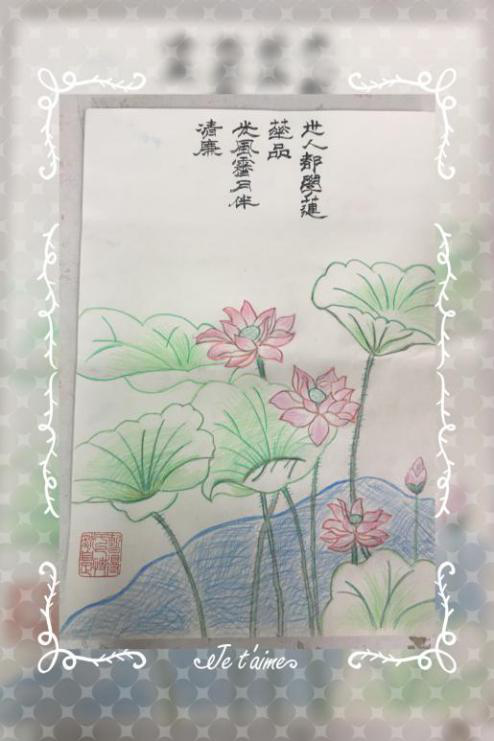 世人都學蓮
華品
光風霽月伴
清廉
Je t'aime